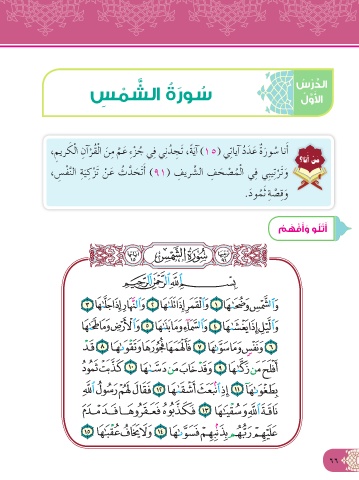 الدَّرْسُ
الأَوَّلُ
سُورَةُ الشَّمْسِ
مَن أَنا؟
أَنا سُورَةٌ عَدَدُ آياتِي (١٥) آيَةً، تَجِدُنِي فِي جُزْءِ عَمَّ مِنَ الْقُرْآنِ الْكَرِيمِ،
وَتَرْتِيبِي فِي الْمُصْحَفِ الشَّرِيفِ (٩١) أَتَحَدَّثُ عَنْ تَزْكِيَةِ النَّفْسِ،
وَقِصَّةِ ثَمُودَ.
أَتْلُو وَأَفْهَمُ
سُورَةُ الشَّمْسِ
بِسْمِ اللَّهِ الرَّحْمَٰنِ الرَّحِيمِ
وَالشَّمْسِ وَضُحَىٰهَا ١ وَالْقَمَرِ إِذَا تَلَىٰهَا ٢ وَالنَّهَارِ إِذَا جَلَّىٰهَا ٣
وَاللَّيْلِ إِذَا يَغْشَىٰهَا ٤ وَالسَّمَاءِ وَمَا بَنَىٰهَا ٥ وَالْأَرْضِ وَمَا طَحَىٰهَا
٦ وَنَفْسٍ وَمَا سَوَّىٰهَا ٧ فَأَلْهَمَهَا فُجُورَهَا وَتَقْوَىٰهَا ٨ قَدْ
أَفْلَحَ مَن زَكَّىٰهَا ٩ وَقَدْ خَابَ مَن دَسَّىٰهَا ١٠ كَذَّبَتْ ثَمُودُ
بِطَغْوَىٰهَا ١١ إِذِ انۢبَعَثَ أَشْقَىٰهَا ١٢ فَقَالَ لَهُمْ رَسُولُ اللَّهِ
نَاقَةَ اللَّهِ وَسُقْيَٰهَا ١٣ فَكَذَّبُوهُ فَعَقَرُوهَا فَدَمْدَمَ
عَلَيْهِمْ رَبُّهُم بِذَنۢبِهِمْ فَسَوَّىٰهَا ١٤ وَلَا يَخَافُ عُقْبَٰهَا ١٥
٦٦